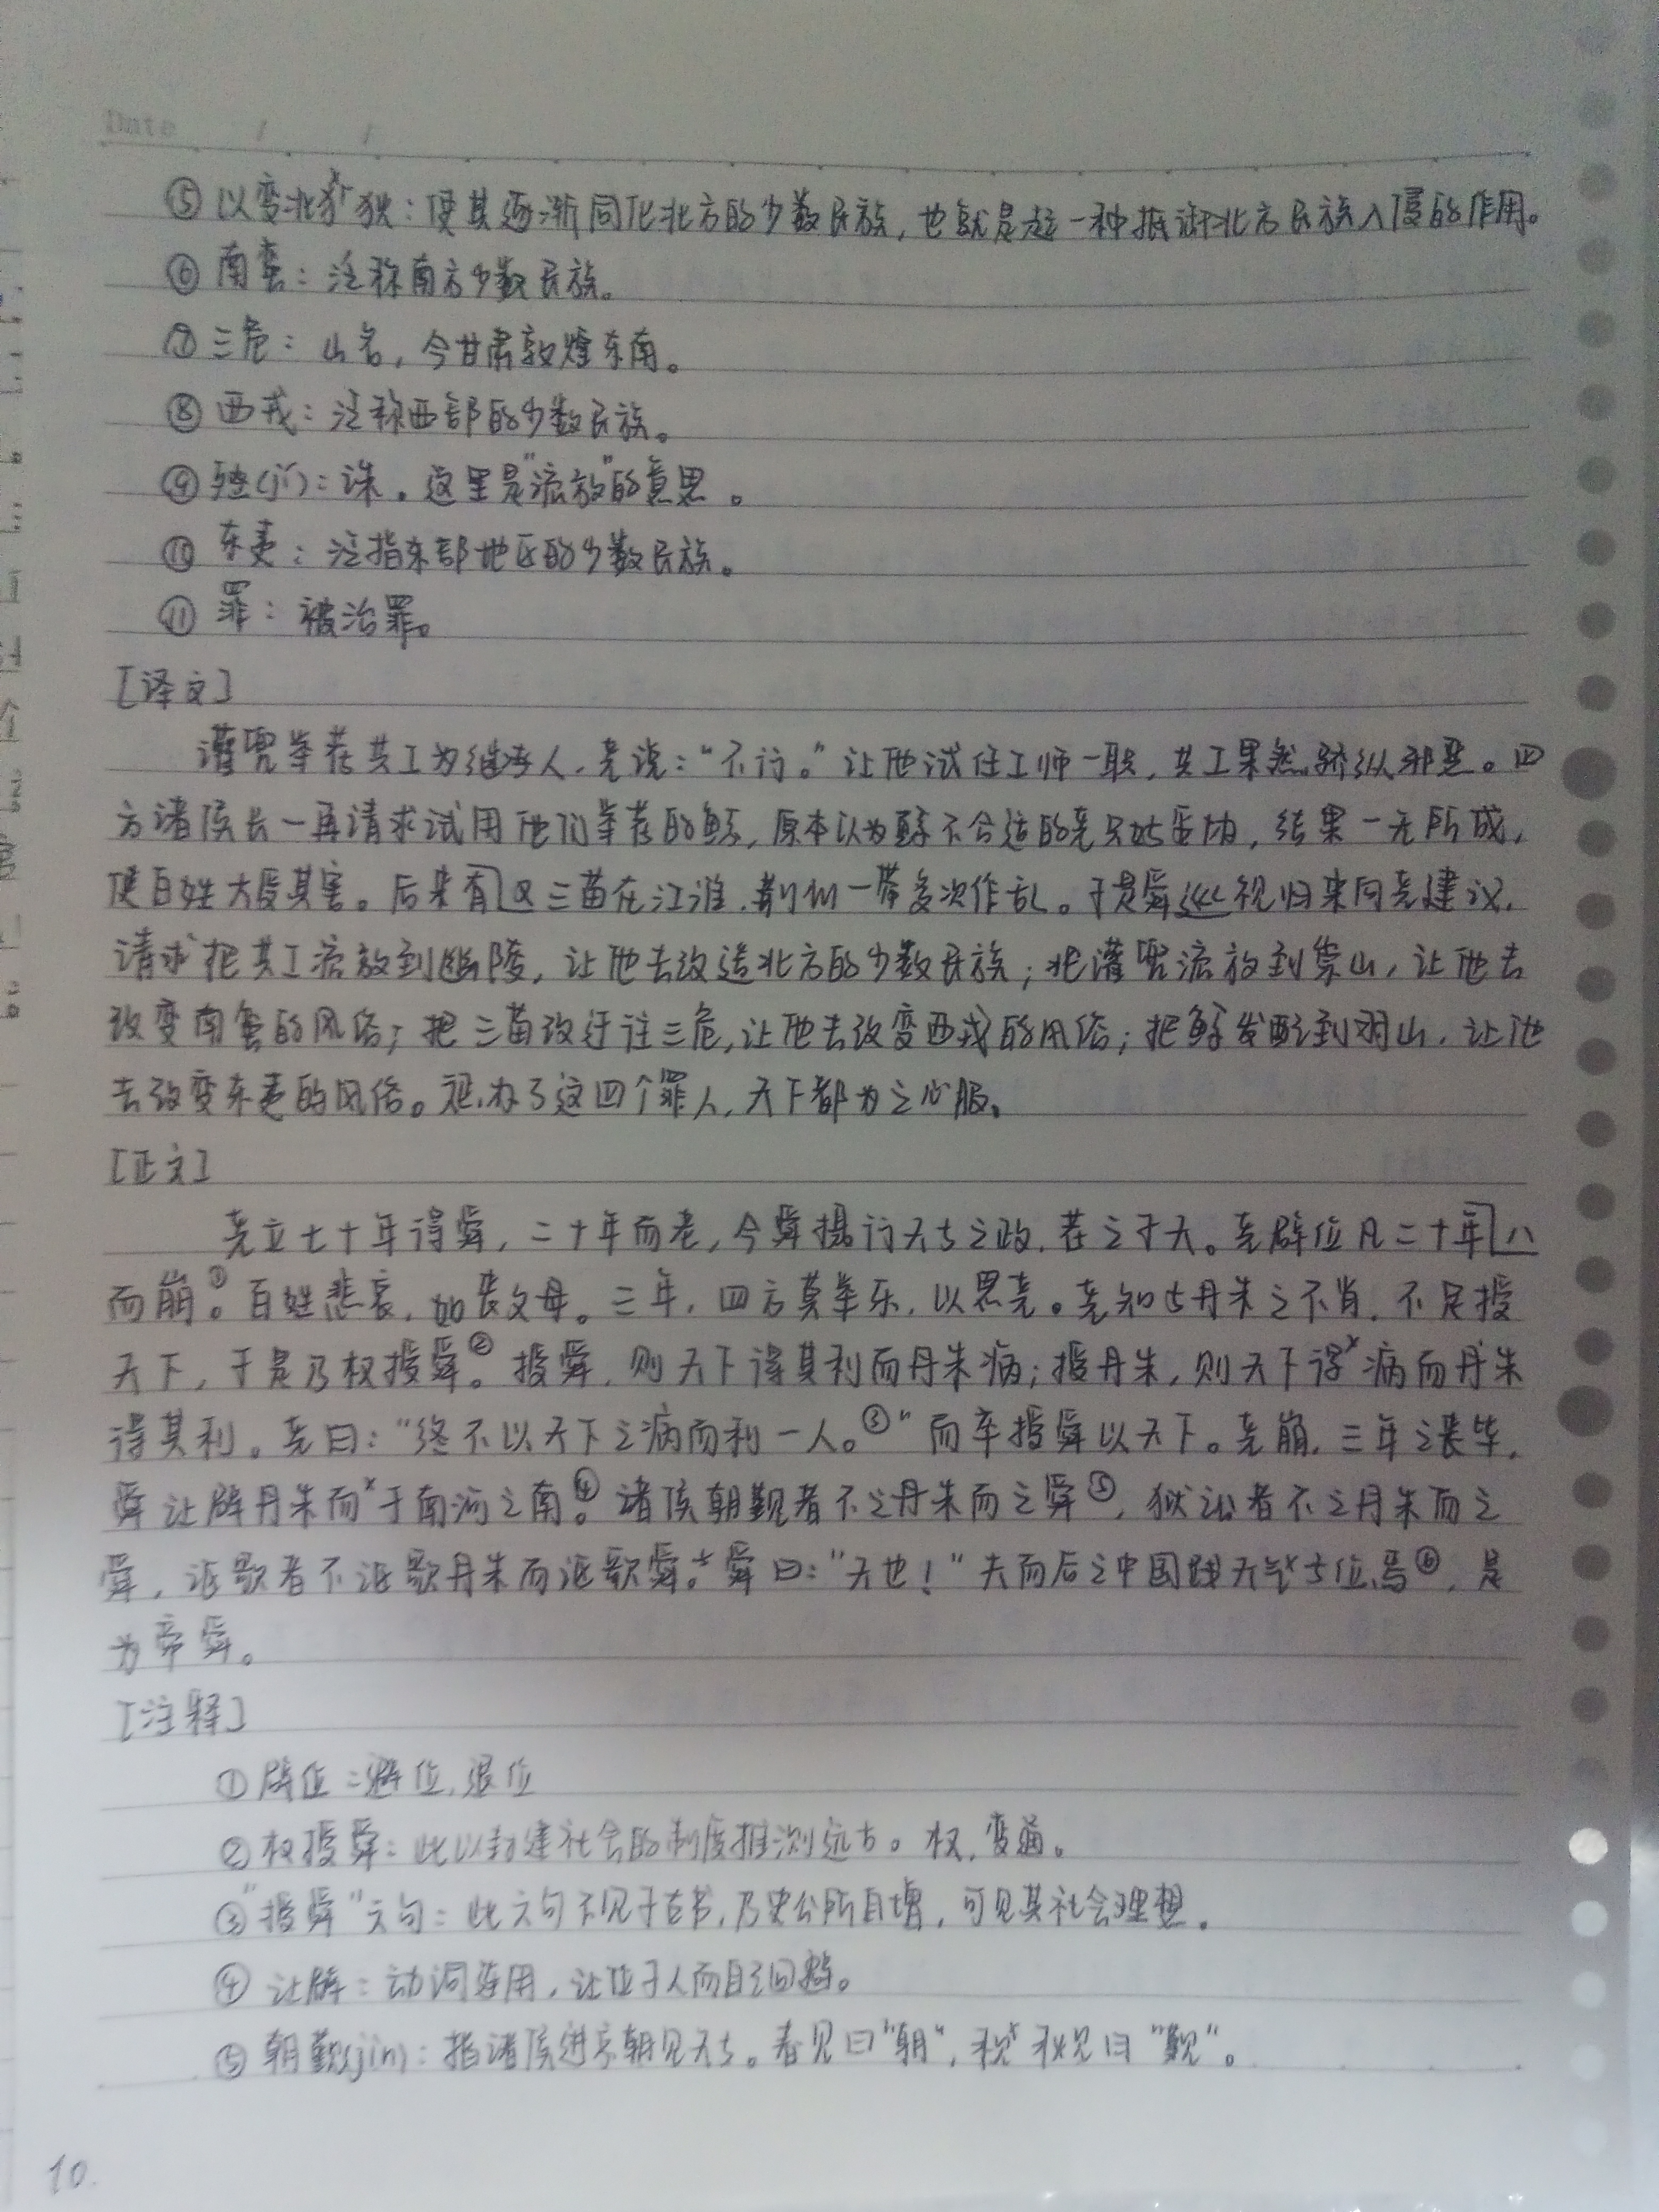 Date / /
⑤ 以变北狄:使其逐渐同化北方的少数民族,也就是起一种抵御北方民族入侵的作用。
⑥ 南蛮:泛称南方少数民族。
⑦ 三危:山名,今甘肃敦煌东南。
⑧ 西戎:泛称西部的少数民族。
⑨ 殛(jí):诛。这里是"流放"的意思。
⑩ 东夷:泛指东部地区的少数民族。
⑪ 罪:被治罪。
[译文]
讙兜举荐共工为继承人,尧说:"不行。"让他试任工师一职,共工果然骄纵邪恶。四
方诸侯长一再请求试用他们举荐的鲧,原本以为鲧不合适的尧只好妥协,结果一无所成,
使百姓大受其害。后来有又三苗在江淮、荆州一带多次作乱。于是舜巡视归来向尧建议,
请求把共工流放到幽陵,让他去改造北方的少数民族;把讙兜流放到崇山,让他去
改变南蛮的风俗;把三苗改迁往三危,让他去改变西戎的风俗;把鲧发配到羽山,让他
去改变东夷的风俗。惩办了这四个罪人,天下都为之心服。
[正文]
尧立七十年得舜,二十年而老,令舜摄行天子之政,荐之于天。尧辟位凡二十年八
而崩①。百姓悲哀,如丧父母。三年,四方莫举乐,以思尧。尧知子丹朱之不肖,不足授
天下,于是乃权授舜②。授舜,则天下得其利而丹朱病;授丹朱,则天下得病而丹朱
得其利。尧曰:"终不以天下之病而利一人。③"而卒授舜以天下。尧崩,三年之丧毕,
舜让辟丹朱而于南河之南④。诸侯朝觐者不之丹朱而之舜⑤,狱讼者不之丹朱而之
舜,讴歌者不讴歌丹朱而讴歌舜。舜曰:"天也!"夫而后之中国践天子位焉⑥,是
为帝舜。
[注释]
① 辟位:避位,退位
② 权授舜:此以封建社会的制度推测远古。权,变通。
③ "授舜"六句:此六句不见于古书,乃史公所自增,可见其社会理想。
④ 让辟:动词连用,让位于人而自己回避。
⑤ 朝觐(jìn):指诸侯进京朝见天子。春见曰"朝",秋见曰"觐"。
10.